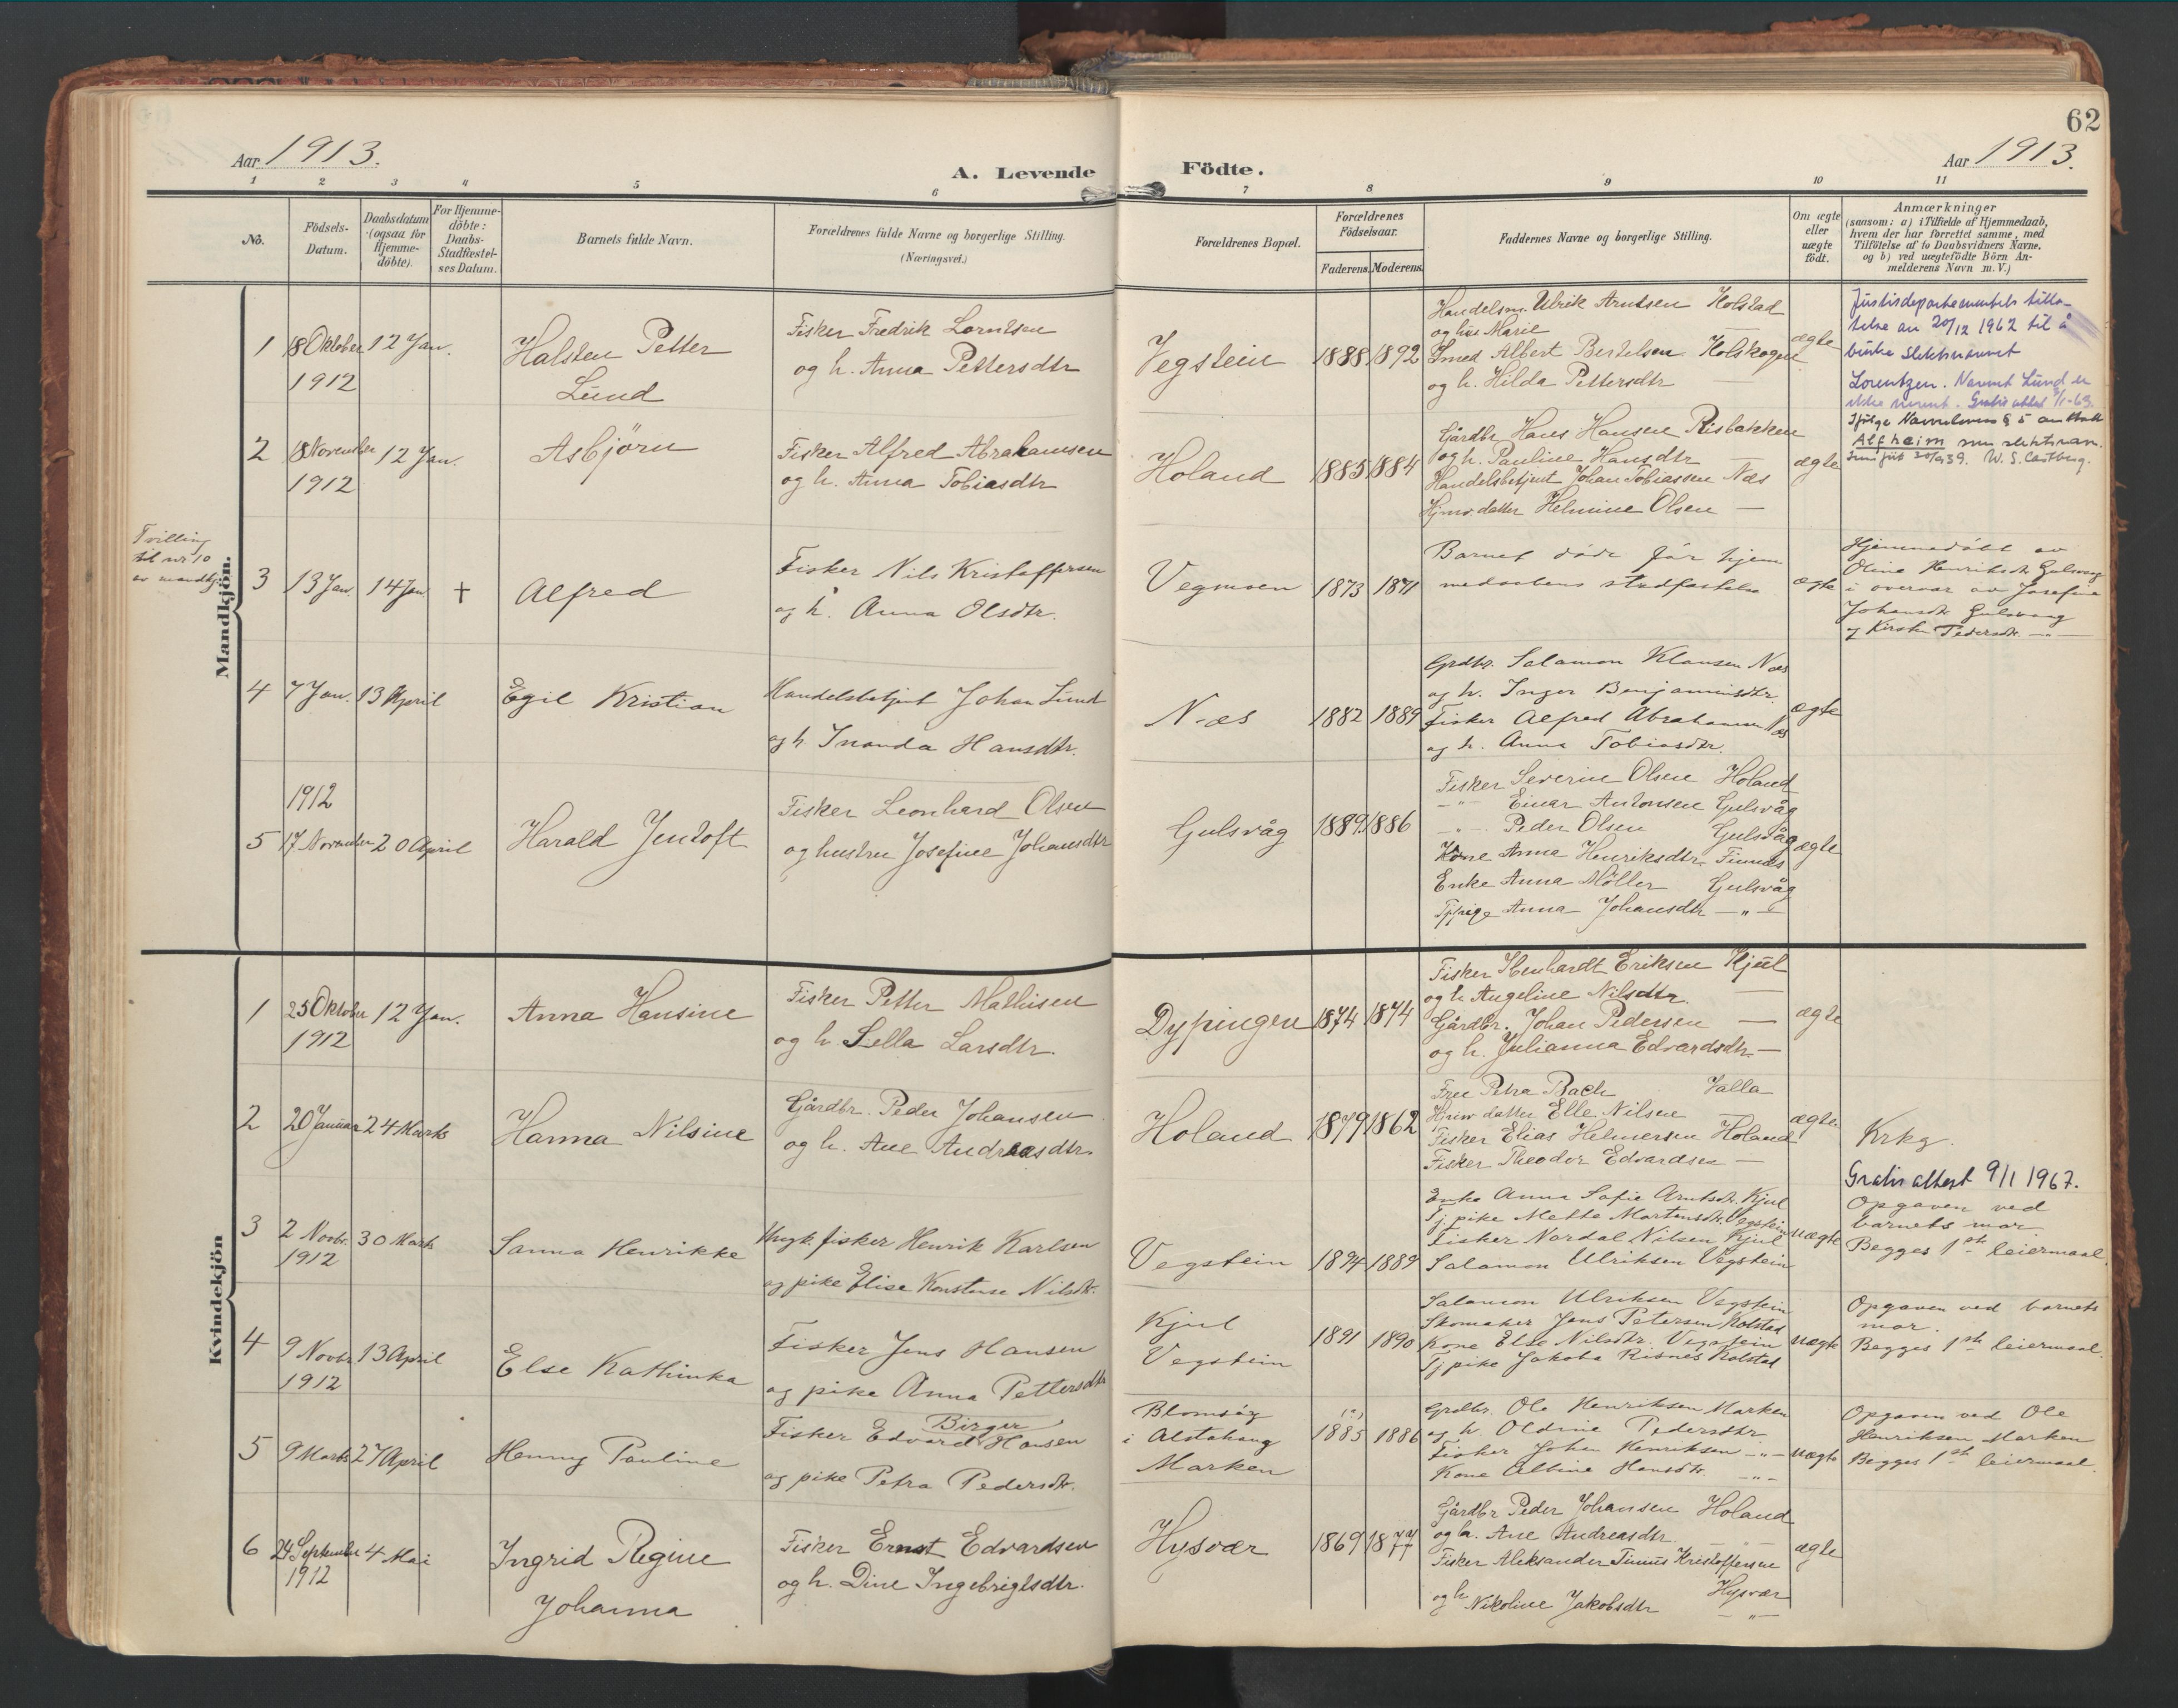 62
Aar 1913.
A. Levende Födte.
Aar 1913.
1 2 3 4 5 6 7 8 9 10 11
No.
Födsels-
Datum.
Daabsdatum
(ogsaa for
Hjemme-
döbte).
For Hjemme-
döbte:
Daabs-
Stadfæstel-
ses Datum.
Barnets fulde Navn.
Forældrenes fulde Navne og borgerlige Stilling.
(Næringsvei.)
Forældrenes Bopæl.
Forældrenes
Födselsaar.
Faderens. Moderens.
Faddernes Navne og borgerlige Stilling.
Om ægte
eller
uægte
födt.
Anmærkninger
(saasom: a) i Tilfælde af Hjemmedaab,
hvem der har forrettet samme, med
Tilföielse af to Daabsvidners Navne,
og b) ved uægtefödte Börn An-
melderens Navn m. V.)
Mandkjön.
1
18 Oktober
1912
12 Jan.
Halsten Petter
Lund
Fisker Fredrik Lorntsen
og h. Anna Pettersdtr
Vegstein
1888 1892
Handelsm. Ulrik Arntsen Kolstad
og hus Marie
Smed Albert Bertelsen Holskogen
og h. Hilda Pettersdtr —
ægte
Justisdepartementets tilla-
telse av 20/12 1962 til å
bruke slektsnavnet
Lorentzen. Navnet Lund er
ikke nevnt. Gratis attest /1-63.
2
18 November
1912
12 Jan.
Asbjörn
Fisker Alfred Abrahamsen
og h. Anna Tobiasdtr
Holand
1885 1884
Gårdbr. Hans Hansen Risbakken
og h. Pauline Hansdtr —
Handelsbetjent Johan Tobiassen Næs
Hjmv. datter Helmine Olsen —
ægte
Ifølge Navnelovens § 5 antatt
Alfheim som slektsnavn.
W. S. Castberg.
Tvilling
til nr 10
av mandkj.
3
13 Jan.
14 Jan.
+
Alfred
Fisker Nils Kristoffersen
og h. Anna Olsdtr.
Vegmoen
1873 1871
Barnet döde för hjem
medaabens stadfæstelse
ægte
Hjemmedöbt av
Oline Henriksdtr Gulsvaag
i overvær av Josefine
Johansdtr Gulsvaag
og Kirstin Pedersdtr. —"—
4
7 Jan.
13 April
Egil Kristian
Handelsbetjent Johan Lund
og h. Inanda Hansdtr.
Næs
1882 1889
Grdbr. Salamon Klausen Næs
og h. Inger Benjaminsdtr.
Fisker Alfred Abrahamsen Næs
og h. Anna Tobiasdtr.
ægte
5
1912
17 November
20 April
Harald Jentoft
Fisker Leonhard Olsen
og hustru Josefine Johansdtr
Gulsvåg
1889 1886
Fisker Severin Olsen Holand
—"— Einar Antonsen Gulsvåg
—"— Peder Olsen Gulsvåg
Kone Anna Henriksdtr. Finnæs
Enke Anna Möller Gulsvåg
Tjpige Anna Johansdtr —"—
ægte
Kvindekjön
1
25 Oktober
1912
12 Jan.
Anna Hansine
Fisker Petter Mathisen
og h. Sella Larsdtr.
Dypingen
1874 1874
Fisker Eriksen Kjul
og h. Angeline Nilsdtr. —
Gårdbr. Johan Pedersen —
og h. Julianna Edvardsdtr. —
ægte
2
20 Januar
24 Marts
Hanna Nilsine
Gårdbr. Peder Johansen
og h. Ane Andreasdtr.
Holand
1879 1862
Fru Petra Bach Valla
Hjmv datter Elle Nilsen
Fisker Elias Helmersen Holand
Fisker Theodor Edvardsen —
ægte
Krkg.
Gratis attest 9/1 1967.
3
2 Novbr.
1912
30 Marts
Sanna Henrikke
Ungk. fisker Henrik Karlsen
og pike Elise Konstanse Nilsdtr.
Vegstein
1894 1889
Enke Anna Sofie Arntsdtr. Kjul
Tj. pike Mette Martensdtr. Vegstein
Fisker Nordal Nilsen Kjul
Salamon Ulriksen Vegstein
uægte
Opgaven ved
barnets mor
Begges 1ste leiermaal.
4
9 Novbr.
1912
13 April
Else Kathinka
Fisker Jens Hansen
og pike Anna Pettersdtr
Kjul
Vegstein
1891 1890
Salamon Ulriksen Vegstein
Skomaker Jens Petersen Kolstad
Kone Else Nilsdtr. Vegstein
Tj. pike Jakoba Risnes Kolstad
uægte
Opgaven ved barnets
mor.
Begges 1ste leiermaal.
5
9 Marts
27 April
Henny Pauline
Birger
Fisker Edvard Hansen
og pike Petra Pedersdtr.
i Alstahaug
Marken
(?)
1885 1886
Grdbr. Ole Henriksen Marken
og h. Oldine Pedersdtr
Fisker Johan Henriksen —"—
Kone Albine Hansdtr. —"—
uægte
Opgaven ved Ole
Henriksen Marken
Begges 1ste leiermaal.
6
24 September
1912
4 Mai
Ingrid Regine
Johanna
Fisker Ernst Edvardsen
og h. Dine Ingebrigtsdtr.
Hysvær
1869 1877
Gårdbr Peder Johansen Holand
og h. Ane Andreasdtr. —"—
Fisker Aleksander Tinius Kristoffersen
Hysvær
og h. Nikoline Jakobsdtr —"—
ægte